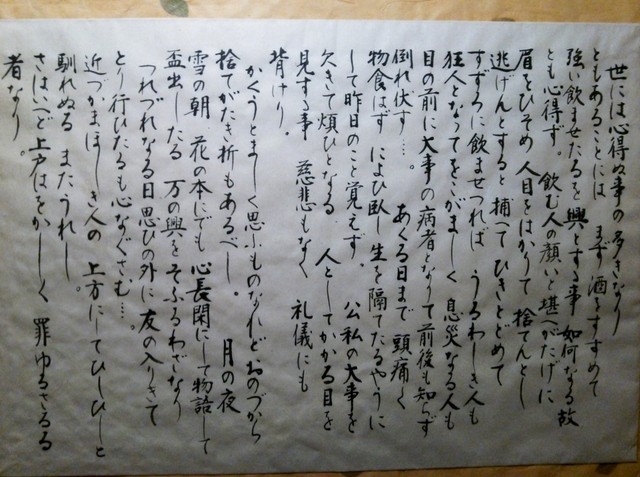 世には心得ぬ事の多きなり
ともあることには まず 酒をすすめて
強い飲ませたるを興とする事 如何なる故
とも心得ず。飲む人の顔いと堪へがたげに
眉をひそめ 人目をはかりて 捨てんとし
逃げんとすると 捕へて ひきとどめて
すずろに飲ませつれば うるわしき人も
狂人となってをこがましく 息災なる人も
目の前に大事の病者となりて前後も知らず
倒れ伏す…。 あくる日まで 頭痛く
物食はず によひ臥し 生を隔てたるやうに
して昨日のこと覚えず。 公私の大事を
欠きて煩ひとなる 人としてかかる目を
見する事 慈悲もなく 礼儀にも
背けり。
かくうとましく思ふものなれど おのづから
捨てがたき折もあるべし。 月の夜
雪の朝 花の本にても 心長閑にして物語して
盃出したる 万の興を そふるわざなり
つれづれなる日 思ひの外に 友の入りきて
とり行ひたるも心なぐさむ…。
近づかまほしき人の 上戸にてひしひしと
馴れぬる またうれし。
さはいへど 上戸はをかしく 罪ゆるさるる
者なり。